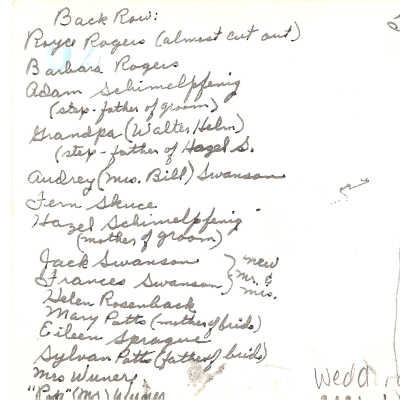 Back Row:
Royce Rogers (almost cut out)
Barbara Rogers
Adam Schimelpfenig
(step-father of groom)
Grandpa (Walter Helm)
(step-father of Hazel S.
Audrey (Mrs. Bill) Swanson
Fern Skuce
Hazel Schimelpfenig
(mother of groom)
Jack Swanson } new
Frances Swanson } Mr. &
Mrs.
Helen Rosenback
Mary Potts (mother of bride)
Eileen Sprague
Sylvan Potts (father of bride)
Mrs Wuner
"Pop" (Mr) Wuner